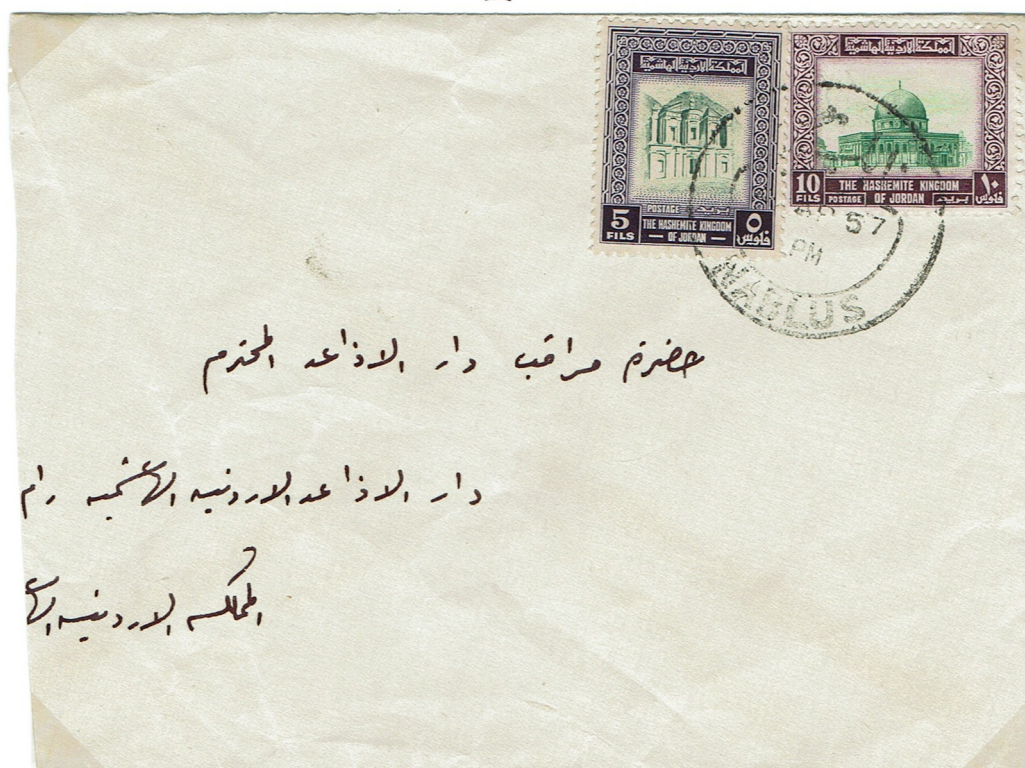 المملكة الاردنية الهاشمية
POSTAGE بريد
5 FILS THE HASHEMITE KINGDOM OF JORDAN ٥ فلوس
المملكة الاردنية الهاشمية
10 FILS THE HASHEMITE KINGDOM OF JORDAN ١٠ فلوس
POSTAGE بريد
57
PM
NABLUS
حضرة مراقب دار الاذاعه المحترم
دار الاذاعه الاردنيه الهاشميه رام
المملكه الاردنيه